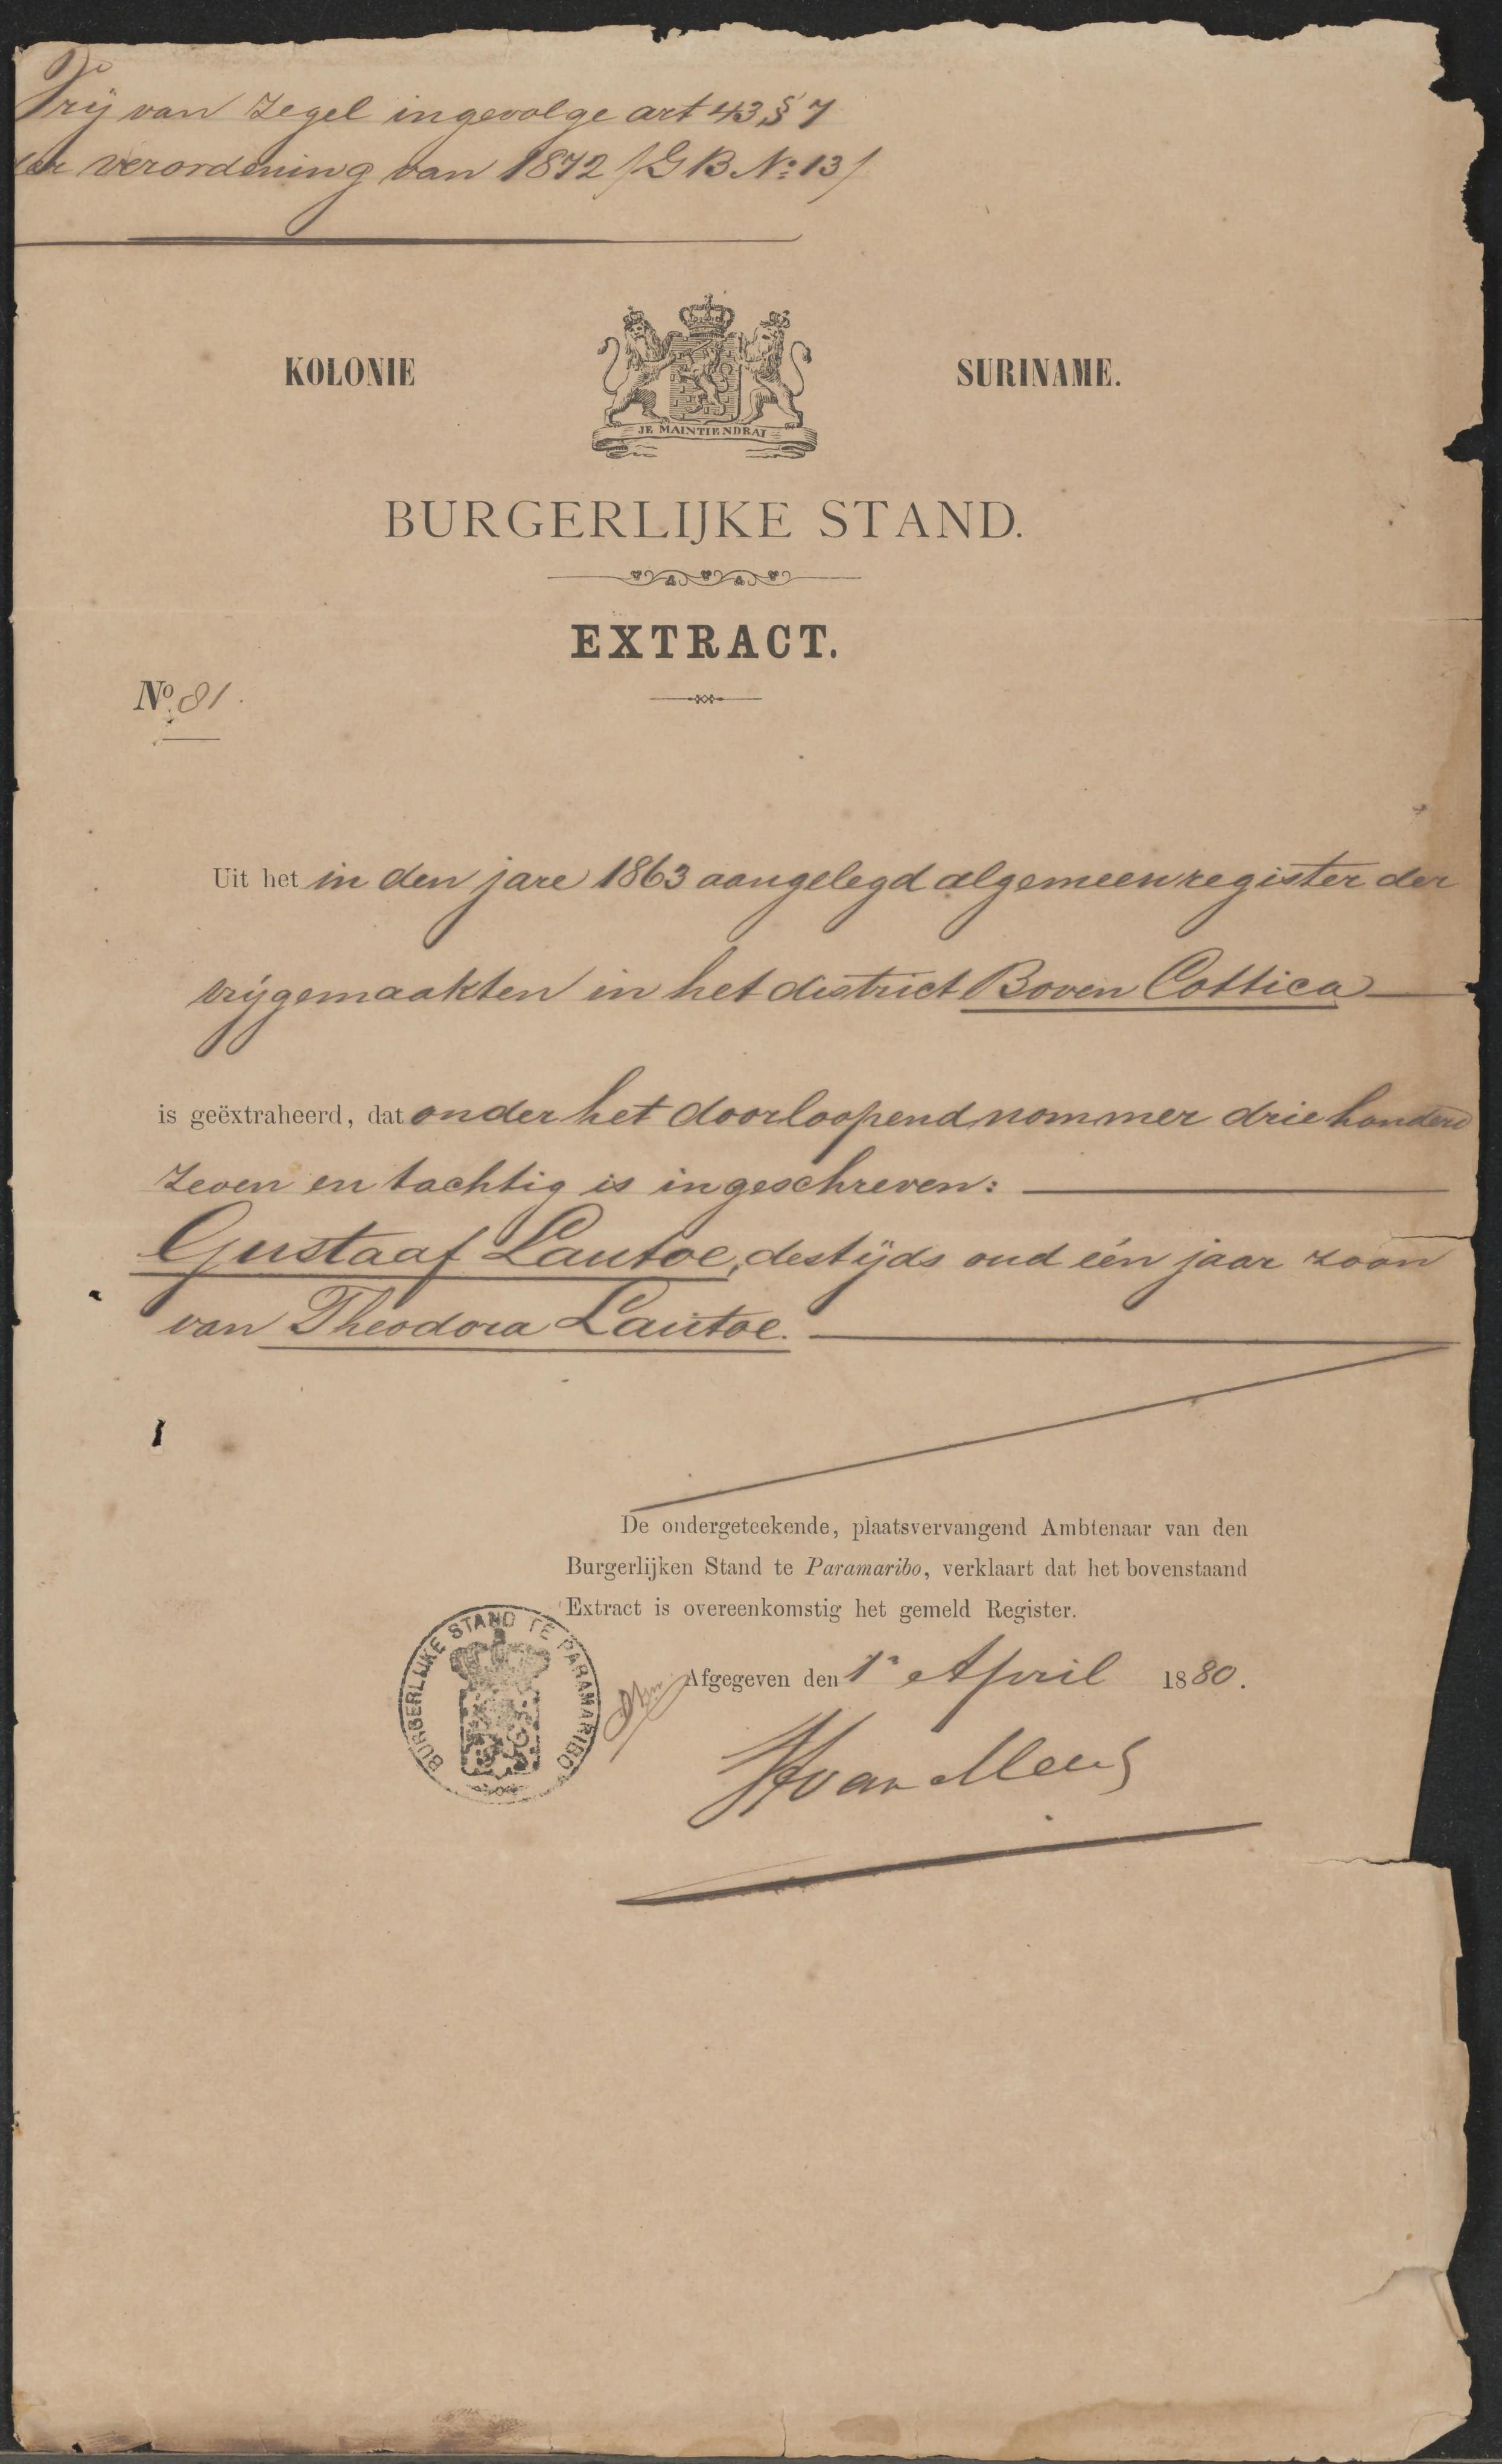 Vrij van Zegel ingevolge art 43, § 7
der verordening van 1872 /GB No: 13/
KOLONIE SURINAME.
JE MAINTIENDRAI
BURGERLIJKE STAND.
EXTRACT.
No. 81.
Uit het in den jare 1863 aangelegd algemeen register der
vrijgemaakten in het district Boven Cottica
is geëxtraheerd, dat onder het doorloopend nommer drie honderd
zeven en tachtig is ingeschreven:
Gustaaf Lautoe, destijds oud één jaar zoon
van Theodora Lautoe.
De ondergeteekende, plaatsvervangend Ambtenaar van den
Burgerlijken Stand te Paramaribo, verklaart dat het bovenstaand
Extract is overeenkomstig het gemeld Register.
BURGERLIJKE STAND TE PARAMARIBO
Afgegeven den 1n April 1880.